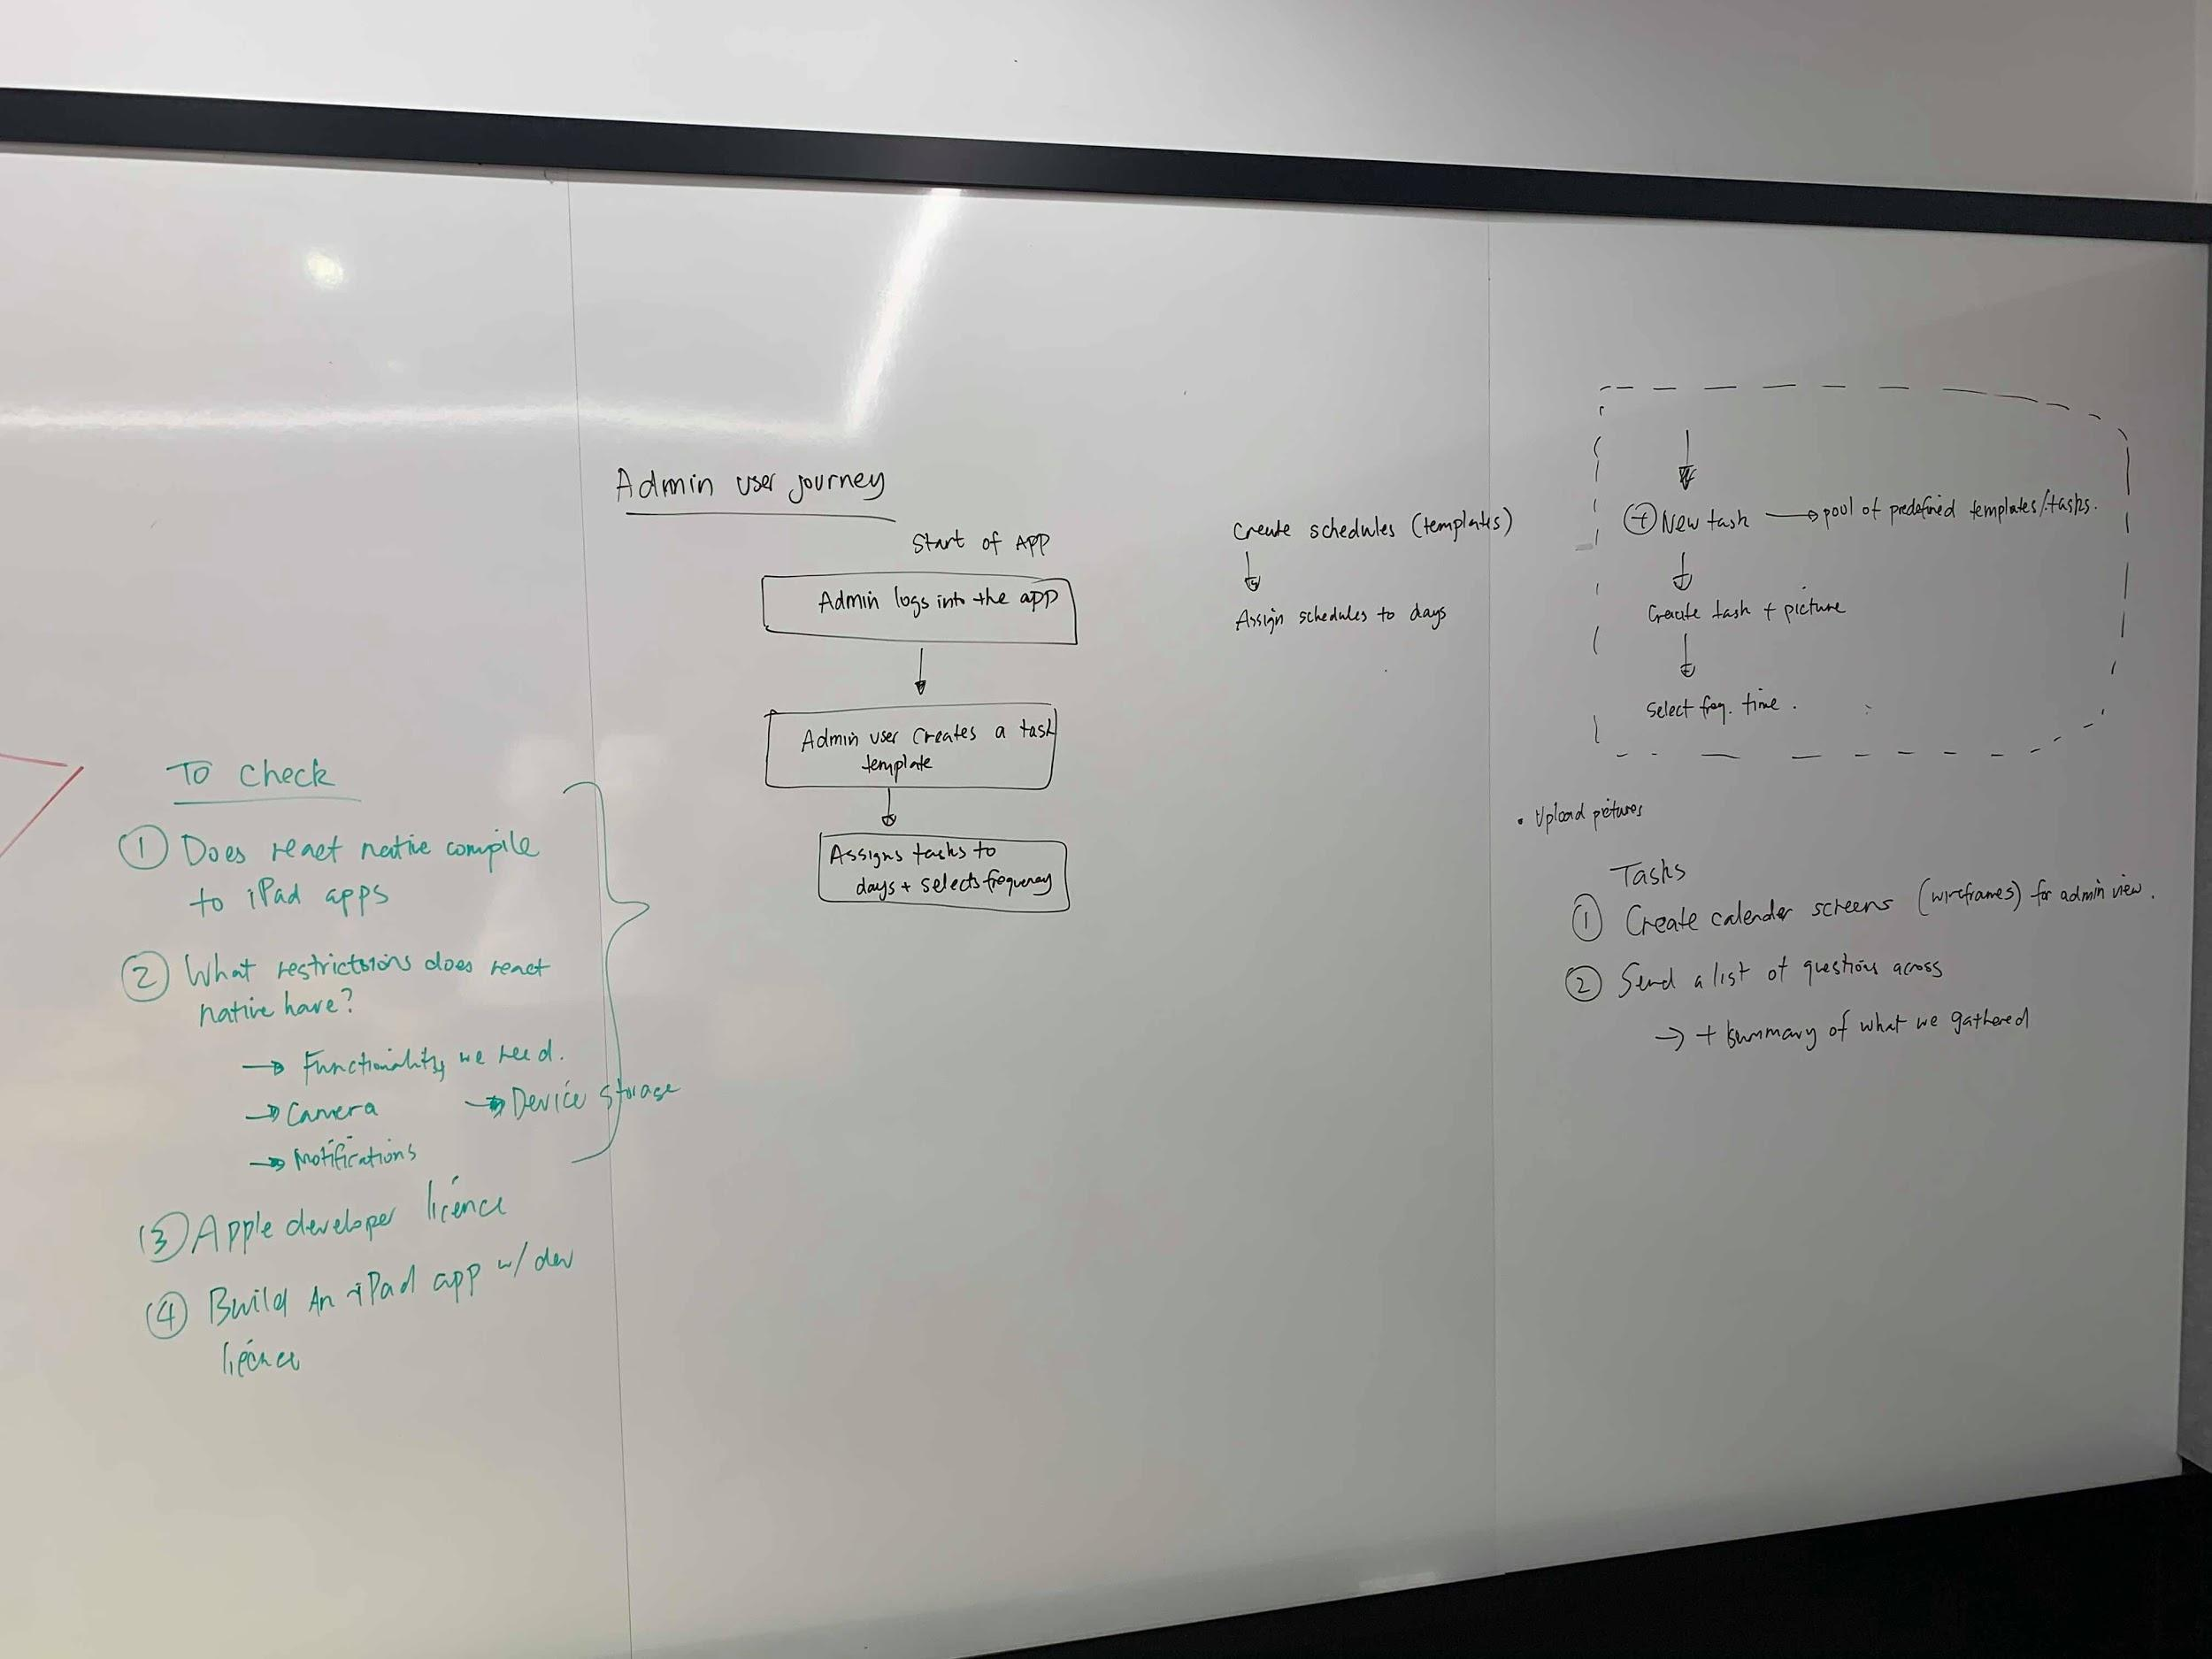 To check
① Does react native compile
to iPad apps
② What restrictsions does react
native have?
→ Functionality we need.
→ Camera → Device storage
→ Notifications
③ Apple developer licence
④ Build An iPad app w/ dev
licence
Admin user journey
Start of APP
Admin logs into the app
↓
Admin user creates a task
template
↓
Assigns tasks to
days + selects frequency
Create schedules (templates)
↓
Assign schedules to days
↓
⊕ New task → pool of predefined templates/tasks.
↓
Create task + picture
↓
Select freq. time.
• Upload pictures
Tasks
① Create calender screens (wireframes) for admin view.
② Send a list of questions across
→ + summary of what we gathered